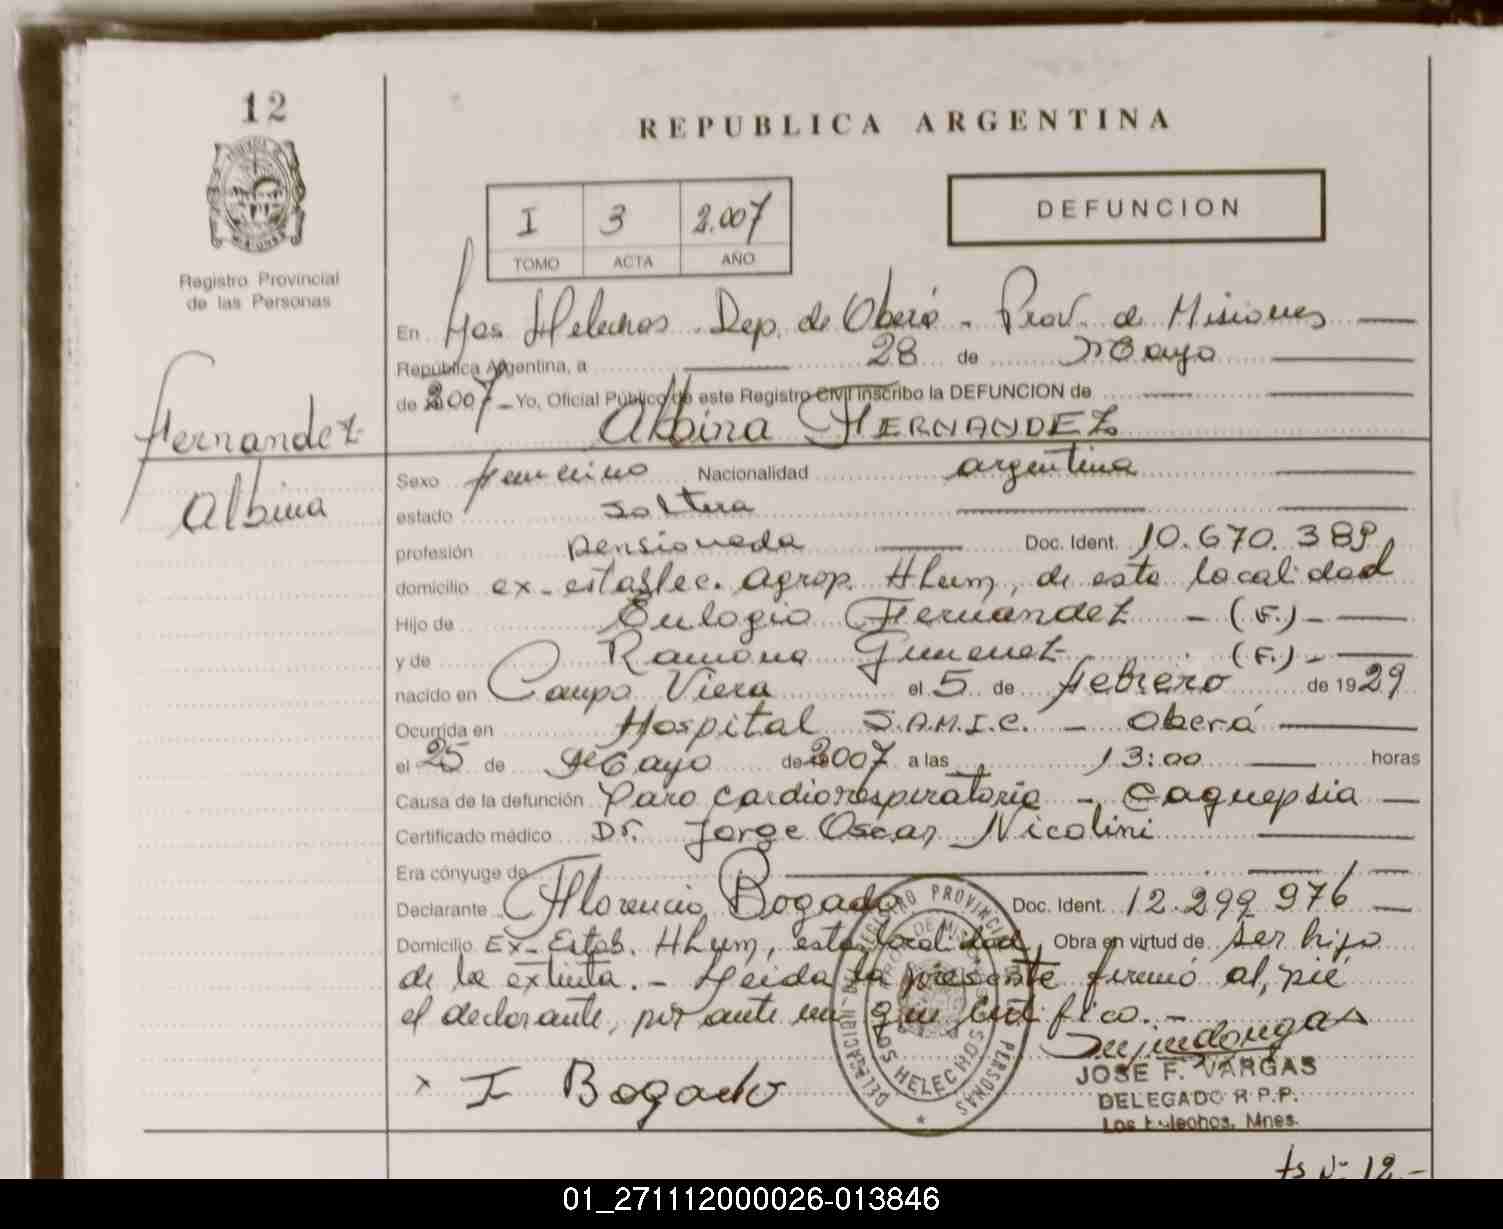 12
REPUBLICA ARGENTINA
I 3 2.007
TOMO ACTA AÑO
DEFUNCION
Registro Provincial
de las Personas
En Los Helechos - Dep. de Oberá - Prov. de Misiones
República Argentina, a 28 de Mayo
de 2007 - Yo, Oficial Público de este Registro Civil inscribo la DEFUNCION de
Albina HERNANDEZ
Hernandez
Albina
Sexo femenino Nacionalidad argentina
estado soltera
profesión pensionada Doc. Ident. 10.670.389
domicilio ex-establec. agrop. Hlum, de esta localidad
Hijo de Eulogio Hernandez - (F.) -
y de Ramona Gimenez (F.) -
nacido en Campo Viera el 5 de febrero de 1929
Ocurrida en Hospital S.A.M.I.C. - Oberá
el 25 de Mayo de 2007 a las 13:00 horas
Causa de la defunción Paro cardiorespiratorio -
Certificado médico Dr. Jorge Oscar Nicolini
Era cónyuge de
Declarante Florencio Bogado Doc. Ident. 12.299.976
Domicilio Ex-Estab. Hlum, esta localidad Obra en virtud de ser hijo
de la extinta. - Leida la presente firmó al pié
el declarante, por ante mi que certifico. -
x F Bogado
JOSE F. VARGAS
DELEGADO R.P.P.
Los Helechos, Mnes.
REGISTRO PROVINCIAL PERSONAS
LOS HELECHOS
fs Nº 12.-
01_271112000026-013846